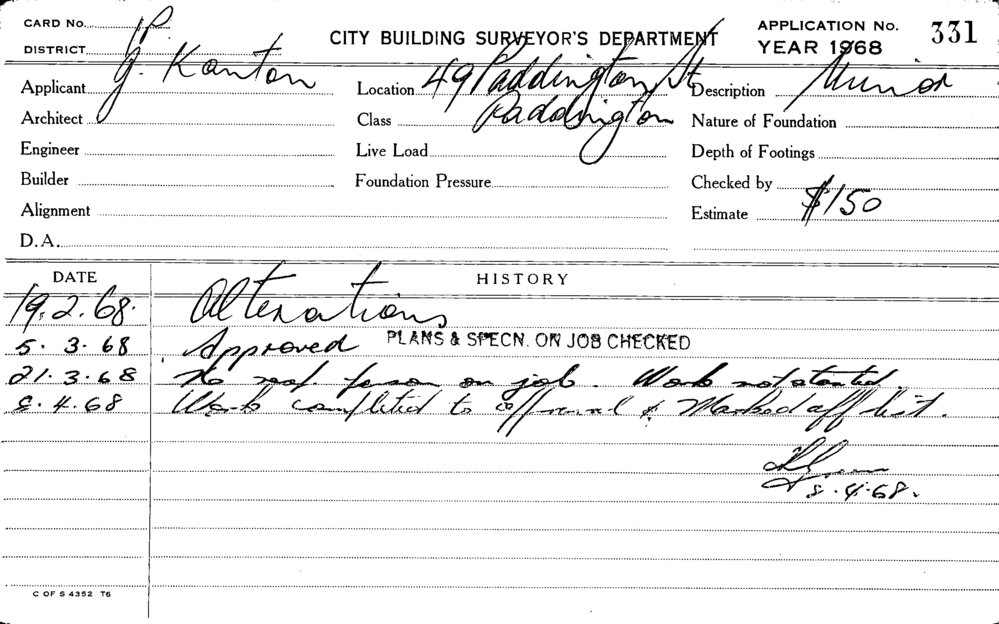 CARD No. P
DISTRICT
CITY BUILDING SURVEYOR'S DEPARTMENT
APPLICATION No. 331
YEAR 1968
Applicant G. Kanton
Location 49 Paddington St
Description Minor
Architect
Class Paddington
Nature of Foundation
Engineer
Live Load
Depth of Footings
Builder
Foundation Pressure
Checked by
Alignment
Estimate $150
D.A.
DATE HISTORY
19.2.68. Alterations
5. 3. 68 Approved PLANS & SPECN. ON JOB CHECKED
21.3.68 No resp. person on job. Work not started.
8.4.68 Work completed to approval & Marked off list.
8.4.68.
C OF S 4352 T6